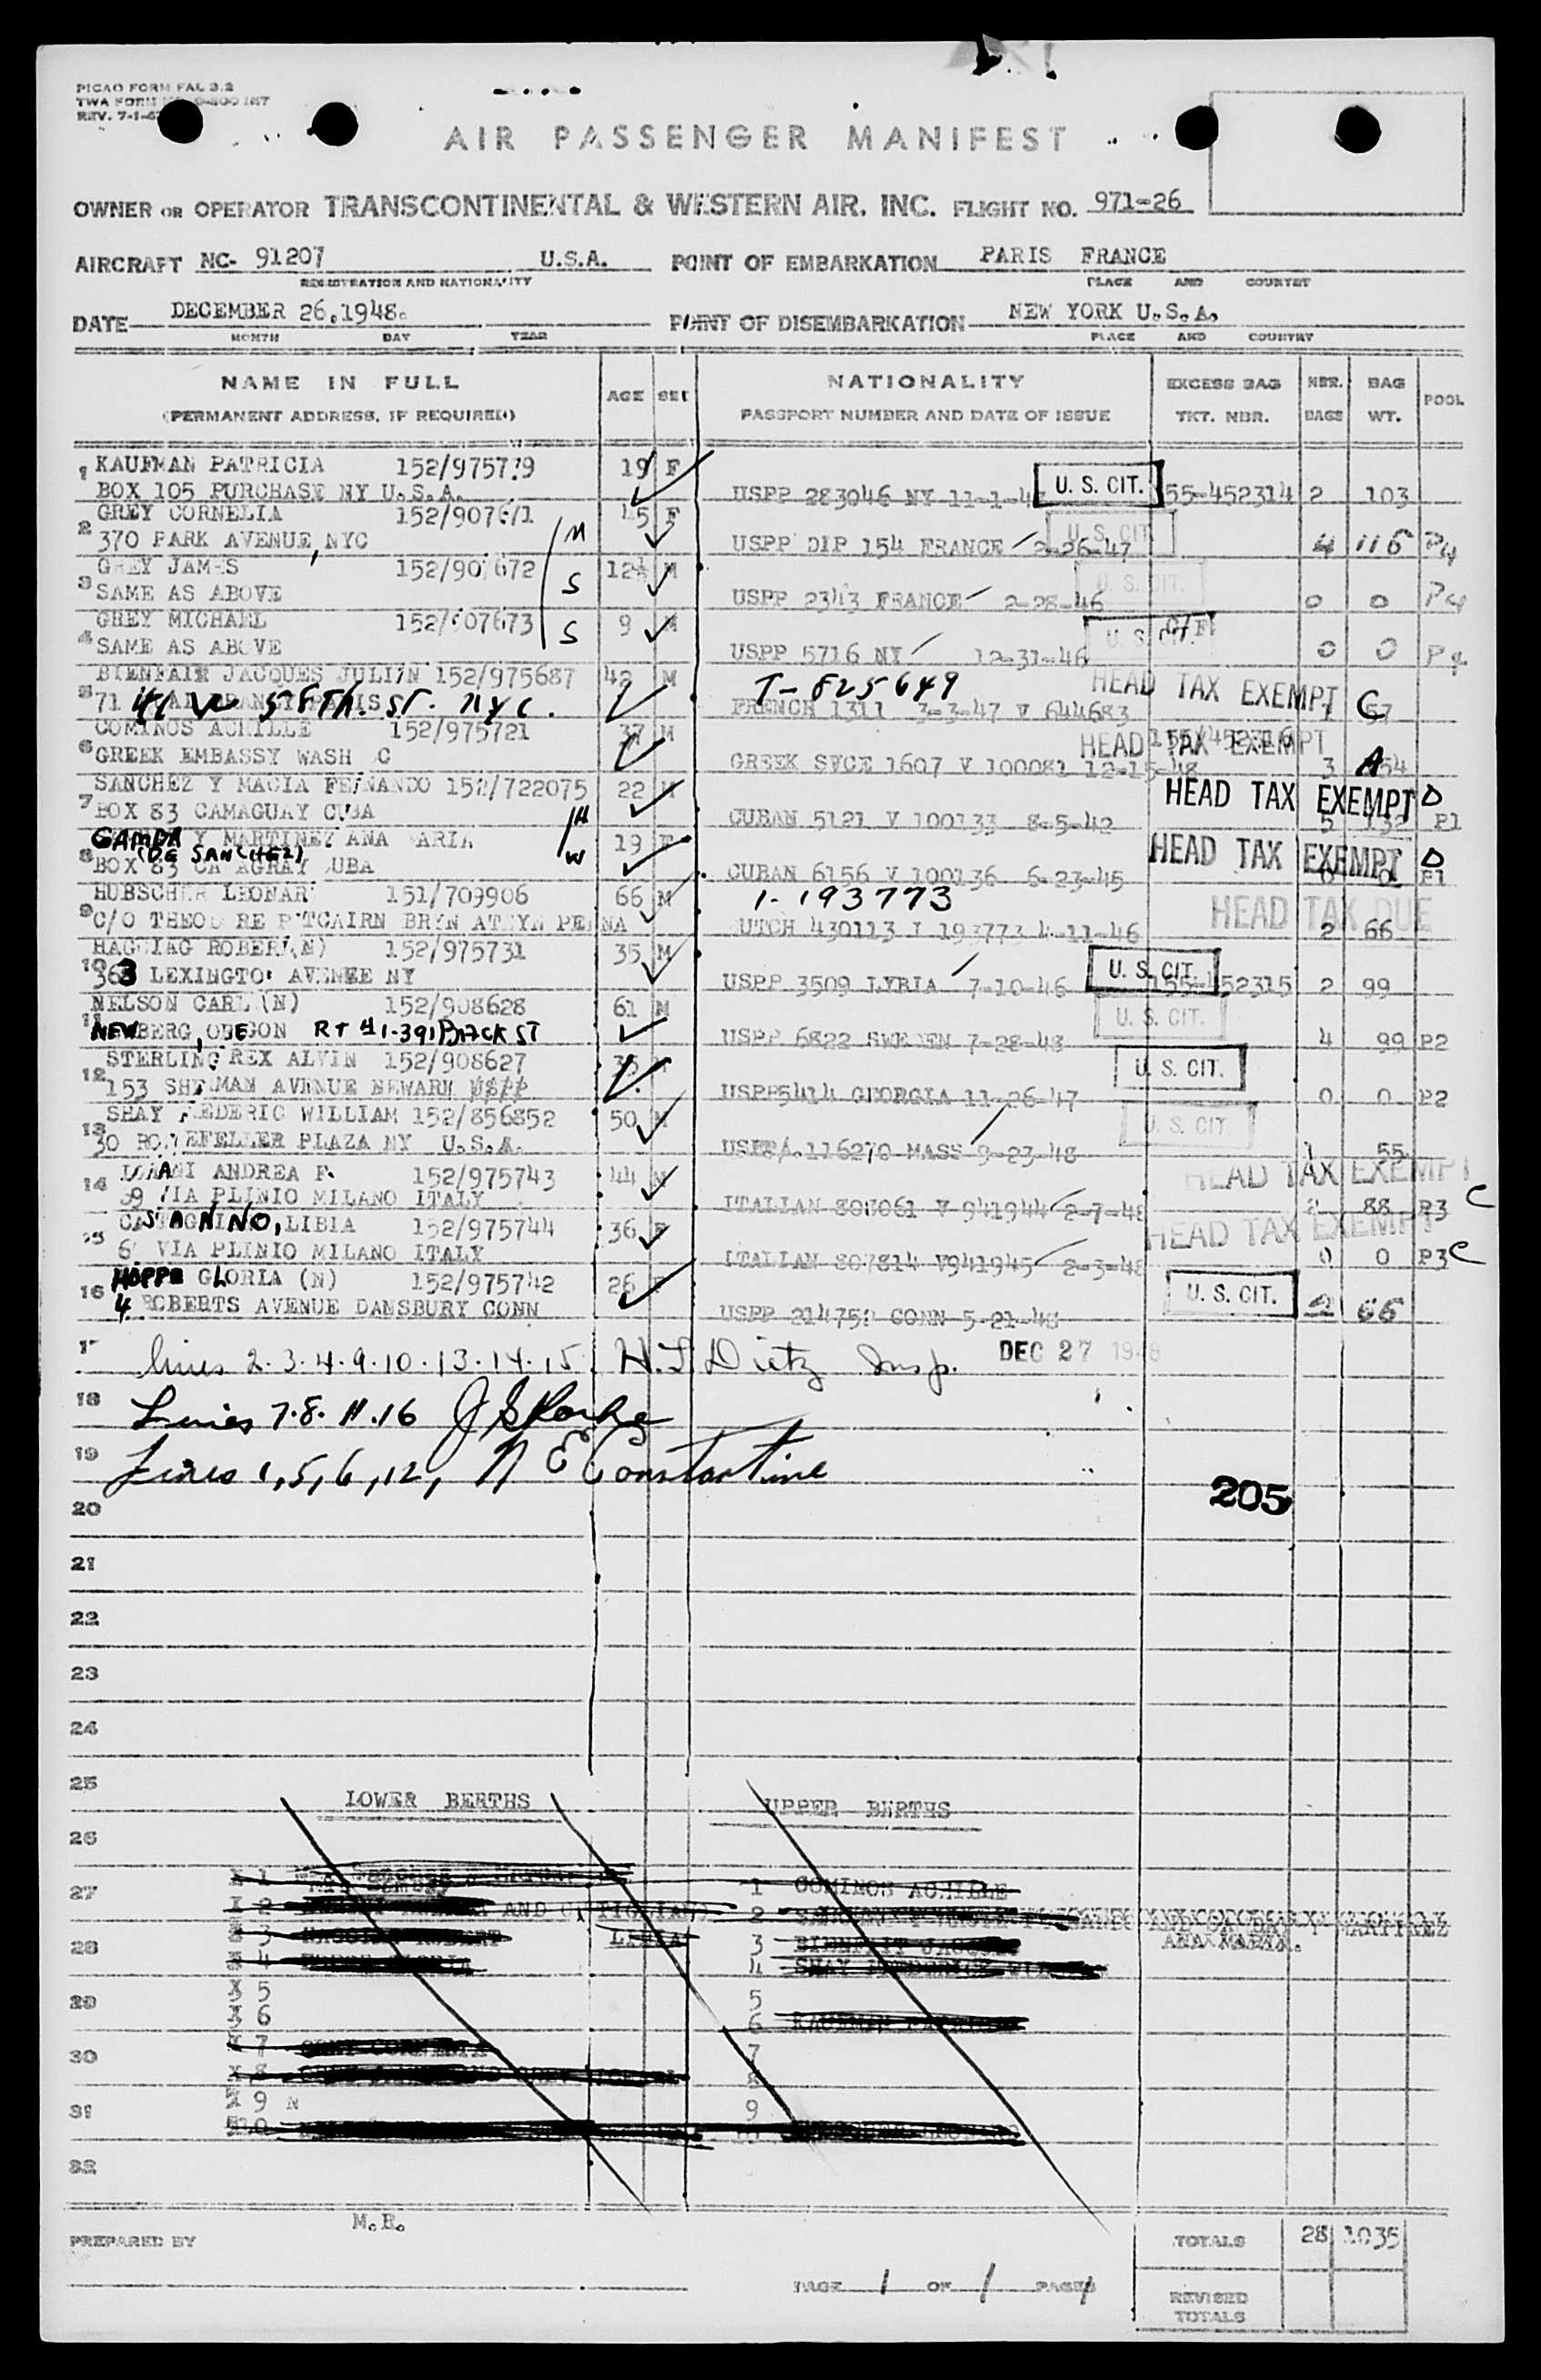 PICAO FORM FAL 3.2
TWA FORM
REV. 7-1-47
AIR PASSENGER MANIFEST
OWNER OR OPERATOR TRANSCONTINENTAL & WESTERN AIR, INC. FLIGHT NO. 971-26
AIRCRAFT NC- 91207 U.S.A. POINT OF EMBARKATION PARIS FRANCE
REGISTRATION AND NATIONALITY PLACE AND COUNTRY
DATE DECEMBER 26.1948. POINT OF DISEMBARKATION NEW YORK U.S.A.
MONTH DAY YEAR PLACE AND COUNTRY
NAME IN FULL AGE SEX NATIONALITY EXCESS BAG NBR. BAG POOL
(PERMANENT ADDRESS, IF REQUIRED) PASSPORT NUMBER AND DATE OF ISSUE TKT. NBR. BAGS WT.
1 KAUFMAN PATRICIA 19 F
BOX 105 PURCHASE NY U.S.A. USPP 283046 NY U. S. CIT. 155-452314 2 103
GREY CORNELIA 45 F
2 370 PARK AVENUE, NYC M USPP DIP 154 FRANCE 2-26-47 U. S. CIT. 4 115 P4
GREY JAMES 152/907672 M
3 SAME AS ABOVE S USPP 2343 FRANCE 2-28-46 U. S. CIT. 0 0 P4
GREY MICHAEL 152/907673 9 M
4 SAME AS ABOVE S USPP 5716 NY 12-31-46 U. S. CIT. 0 0 P4
BIENFAIT JACQUES JULIEN 152/975687 42 M T-825649
5 71 41 W 58TH. ST. NYC. FRENCH 1311 3-3-47 V 644683 HEAD TAX EXEMPT C 57
COMINOS ACHILLE 152/975721 37 M
6 GREEK EMBASSY WASH GREEK SVCE 1607 V 100081 12-15-48 HEAD TAX EXEMPT 3 A 54
SANCHEZ Y MACIA FERNANDO 152/722075 22 M
7 BOX 83 CAMAGUAY CUBA H CUBAN 5121 V 100133 8-5-42 HEAD TAX EXEMPT D 5 132 P1
GAMBA Y MARTINEZ ANA MARIA 19 F
(DE SANCHEZ)
8 BOX 83 CUBA W CUBAN 6156 V 100136 6-23-45 HEAD TAX EXEMPT D 0 0 P1
HUBSCHER LEONARD 151/709906 66 M I-193773
9 C/O THEODORE PITCAIRN BRYN ATHYN PENNA 430113 I 193773 4-11-46 HEAD TAX DUE 2 66
ROBERT(N) 152/975731 35 M
10 363 LEXINGTON AVENUE NY USPP 3509 LYBIA 7-10-46 U. S. CIT. 155-452315 2 99
NELSON CARL (N) 152/908628 61 M
11 NEWBERG, OREGON RT #1-391 BACK ST USPP 6822 SWEDEN 7-28-48 U. S. CIT. 4 99 P2
STERLING REX ALVIN 152/908627 35
12 153 SHERMAN AVENUE NEWARK USPP5414 GEORGIA 11-26-47 U. S. CIT. 0 0 P2
SHAY FREDERIC WILLIAM 152/856852 50 M
13 30 ROCKEFELLER PLAZA NY U.S.A. 116270 MASS 9-23-48 U. S. CIT. 1 55
ANDREA F. 152/975743 44 M
14 VIA PLINIO MILANO ITALY ITALIAN 807061 V 941944 2-7-48 HEAD TAX EXEMPT 2 88 P3 C
CASTAGNINO, LIBIA 152/975744 36 F
15 VIA PLINIO MILANO ITALY ITALIAN 807814 V941945 2-3-48 HEAD TAX EXEMPT 0 0 P3 C
HOPPE GLORIA (N) 152/975742 26 F
16 4 ROBERTS AVENUE DANSBURY CONN USPP CONN 5-21-48 U. S. CIT. 2 66
17 lines 2.3.4.9.10.13.14.15. H. L. Dietz Insp. DEC 27 1948
18 Lines 7.8.11.16
19 Lines 1,5,6,12, N E Constantine
205
20
21
22
23
24
25
LOWER BERTHS UPPER BERTHS
26
27
X 1 1 COMINOS ACHILLE
X 2 AND 2
28
X 3 ROBERT LIBIA 3 BIENFAIT JACQUES
ANA MARIA.
X 4 4 SHAY FREDERICK
29
X 5 5
X 6 6
30
X 7 GREY CORNELIA 7
X 8 8
31
X 9 N 9
10 10
32
PREPARED BY M.R.
TOTALS 28 1035
PAGE 1 OF 1 PAGES
REVISED
TOTALS